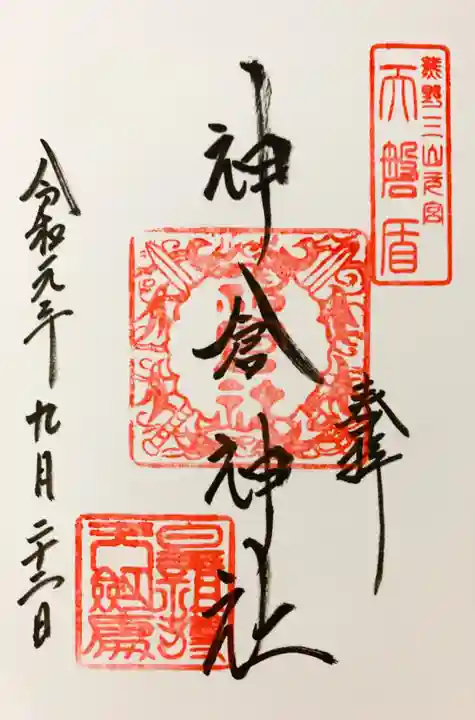 熊野三山元宮
天磐盾
奉拝
神倉神社
令和元年九月二十二日